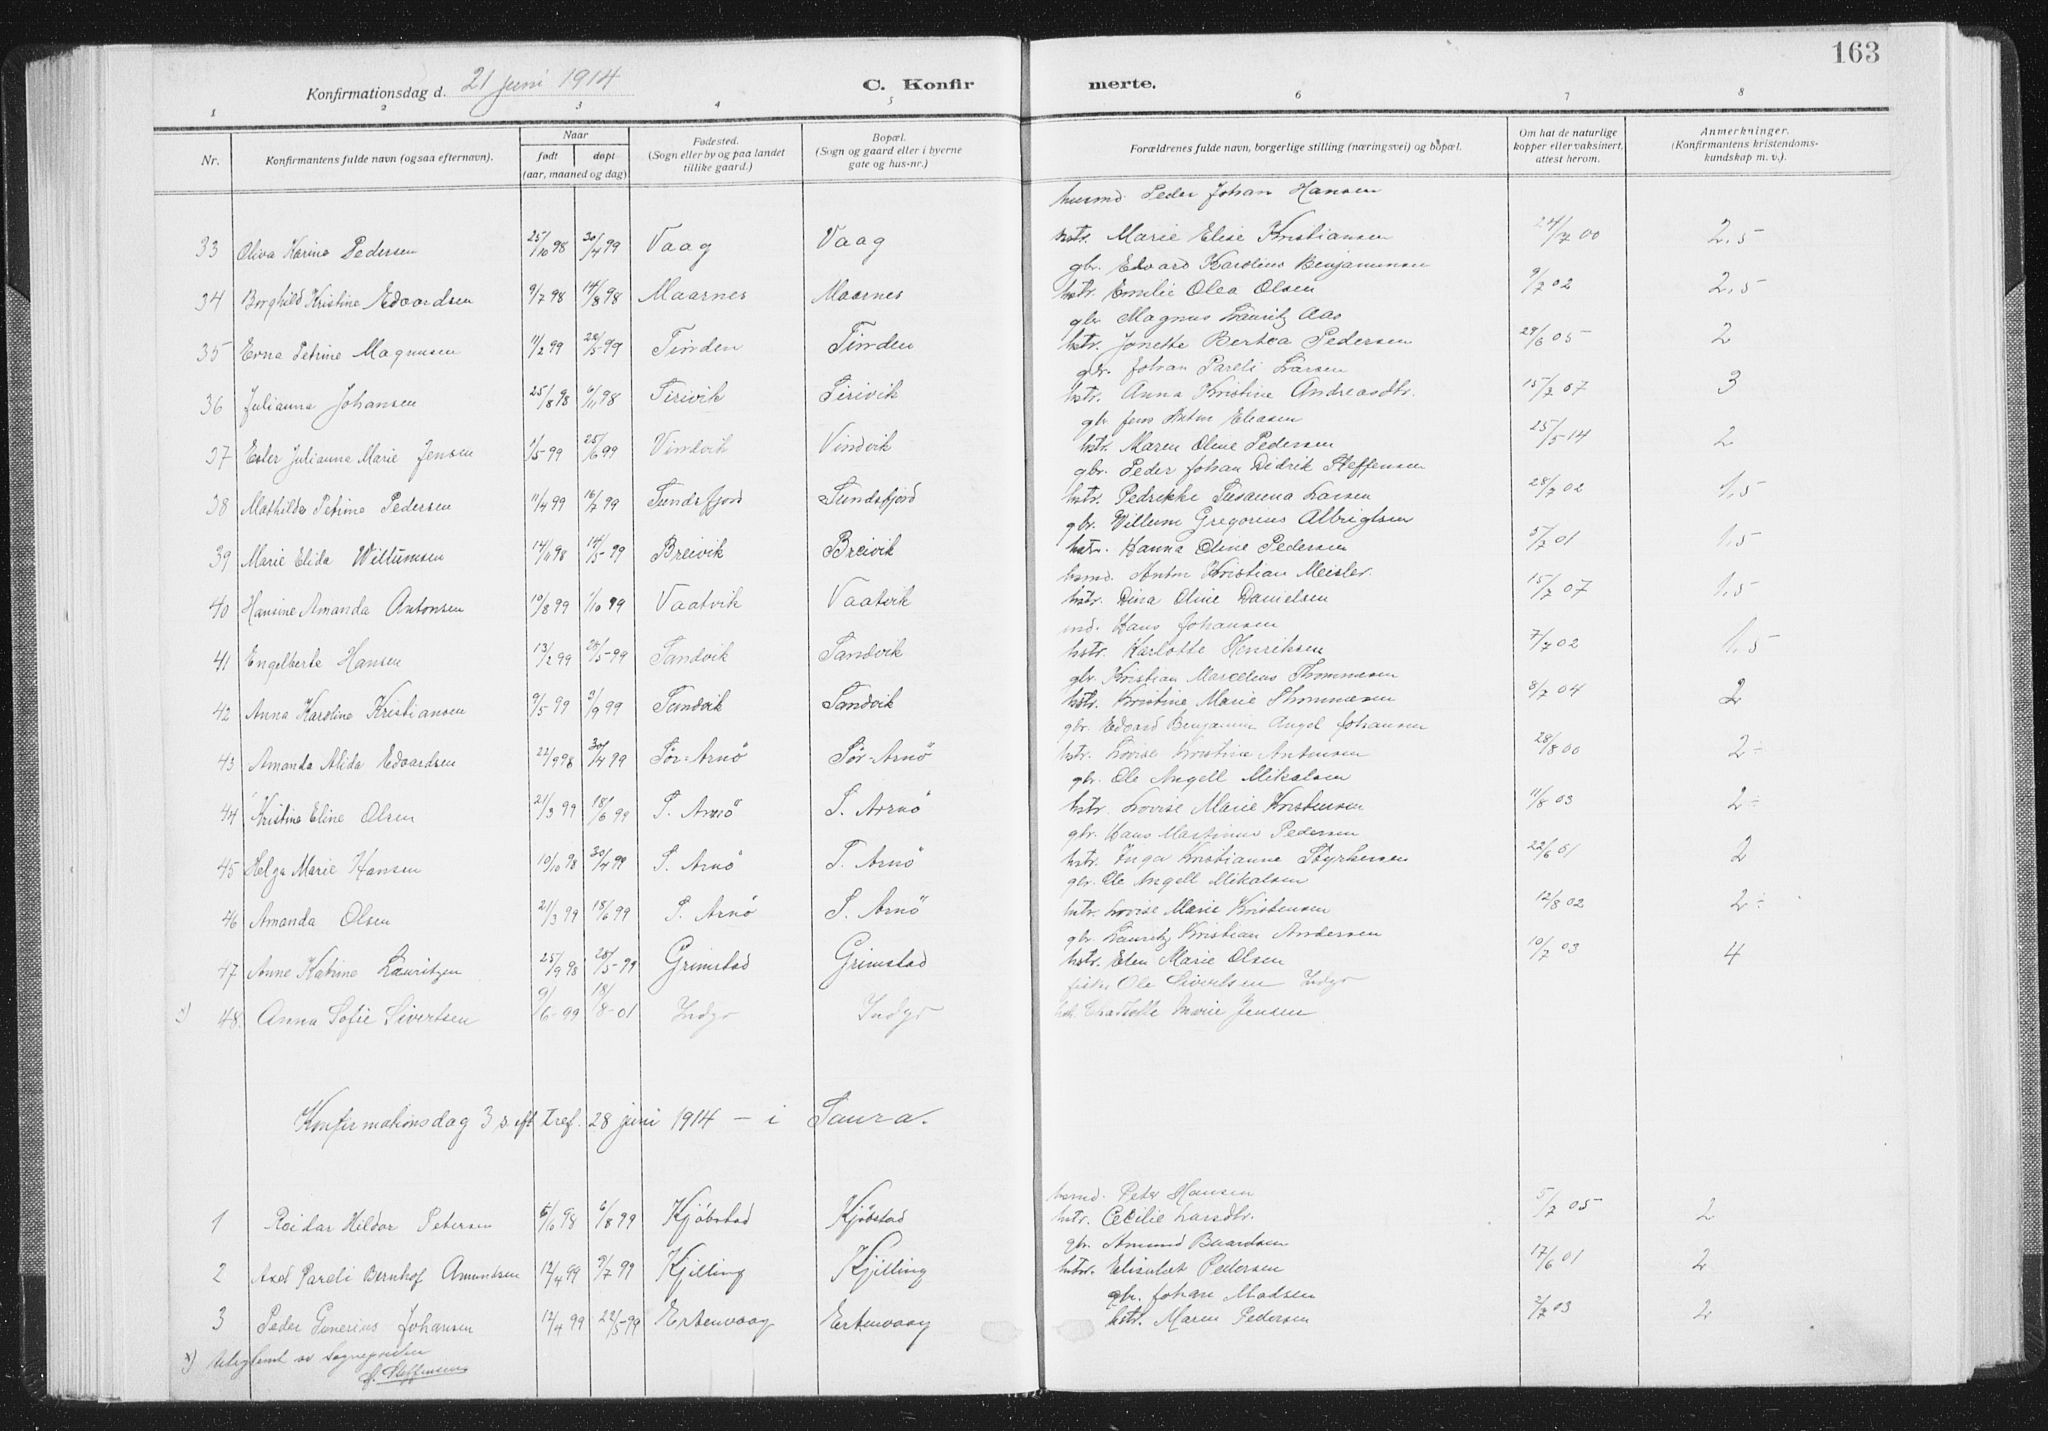 163
Konfirmationsdag d. 21 juni 1914
C. Konfirmerte.
1 2 3 4 5 6 7 8
Nr. Konfirmantens fulde navn (ogsaa efternavn). Naar født døpt (aar, maaned og dag) Fødested. (Sogn eller by og paa landet tillike gaard.) Bopæl. (Sogn og gaard eller i byerne gate og hus-nr.) Forældrenes fulde navn, borgerlige stilling (næringsvei) og bopæl. Om hat de naturlige kopper eller vaksinert, attest herom. Anmerkninger. (Konfirmantens kristendomskundskap m. v.).
husmd. Peder Johan Hansen
33 Oliva Karine Pedersen 25/10 98 30/4 99 Vaag Vaag hstr. Marie Elise Kristiansen 24/7 00 2,5
gbr. Edvard Karolius Benjaminsen
34 Borghild Kristine Edvardsen 9/7 98 14/8 98 Maarnes Maarnes hstr. Emilie Olea Olsen 9/7 02 2,5
gbr. Magnus Lauritz Aas
35 Erna Petrine Magnusen 11/2 99 22/5 99 Tinden Tinden hstr. Jonette Bertea Pedersen 29/6 05 2
gbr. Johan Pareli Larsen
36 Julianna Johansen 25/8 98 6/11 98 Sirivik Sirivik hstr. Anna Kristine Andreasdtr. 15/7 07 3
gbr. Jens Anton Eliasen
37 Ester Julianna Marie Jensen 1/5 99 25/6 99 Vindvik Vindvik hstr. Maren Oline Pedersen 25/5 14 2
gbr. Peder Johan Didrik Steffensen
38 Mathilde Petrine Pedersen 11/4 99 16/7 99 Sundsfjord Sundsfjord hstr. Pedrikke Susanna Larsen 28/7 02 1,5
gbr. Willum Gregorius Albrigtsen
39 Marie Elida Willumsen 14/11 98 14/5 99 Breivik Breivik hstr. Hanna Oline Pedersen 5/7 01 1,5
hsmd. Anton Kristian Meisler
40 Hansine Amanda Antonsen 10/8 99 1/10 99 Vaatvik Vaatvik hstr. Dina Oline Danielsen 15/7 07 1,5
ind. Hans Johansen
41 Engelberte Hansen 13/2 99 28/5 99 Sandvik Sandvik hstr. Karlotte Henriksen 7/7 02 1,5
gbr. Kristian Marcelius Thommesen
42 Anna Karoline Kristiansen 9/5 99 3/9 99 Sandvik Sandvik hstr. Kristine Marie Thommesen 8/7 04 2
gbr. Edvard Benjamin Angel Johansen
43 Amanda Alida Edvardsen 22/9 98 30/4 99 Sör-Arnö Sör-Arnö hstr. Lovise Kristine Antonsen 28/8 00 2÷
gbr. Ole Angell Mikalsen
44 Kristine Eline Olsen 21/3 99 18/6 99 S. Arnö S. Arnö hstr. Lovise Marie Kristensen 11/8 03 2÷
gbr. Hans Martinus Pedersen
45 Helga Marie Hansen 10/10 98 30/4 99 S. Arnö S. Arnö hstr. Inga Kristianne Styrkersen 22/6 01 2
gbr. Ole Angell Mikalsen
46 Amanda Olsen 21/3 99 18/6 99 S. Arnö S. Arnö hstr. Lovise Marie Kristensen 12/8 02 2÷
gbr. Lauritz Kristian Andersen
47 Anne Katrine Lauritzen 25/9 98 28/5 99 Grimstad Grimstad hstr. Elen Marie Olsen 10/7 03 4
fisker Ole Sivertsen Indyr
x) 48. Anna Sofie Sivertsen 9/6-99 18/8-01 Indyr Indyr hst. Charlotte Marie Jensen
Konfirmationsdag 3 s eft tref. 28 juni 1914 – i Saura.
hsmd. Peter Hansen
1 Reidar Hildor Petersen 5/10 98 6/8 99 Kjöbstad Kjöbstad hstr. Cecilie Larsdtr. 5/7 05 2
gbr. Amund Baardsen
2 Axel Pareli Bernhof Amundsen 12/4 99 9/7 99 Kjelling Kjelling hstr. Elisabet Pedersen 17/6 01 2
gbr. Johan Madsen
3 Peder Generius Johansen 12/4 99 22/5-99 Ertenvaag Ertenvaag hstr. Maren Pedersen 2/7 03 2
x) Uteglemt av sognepresten
Steffensen